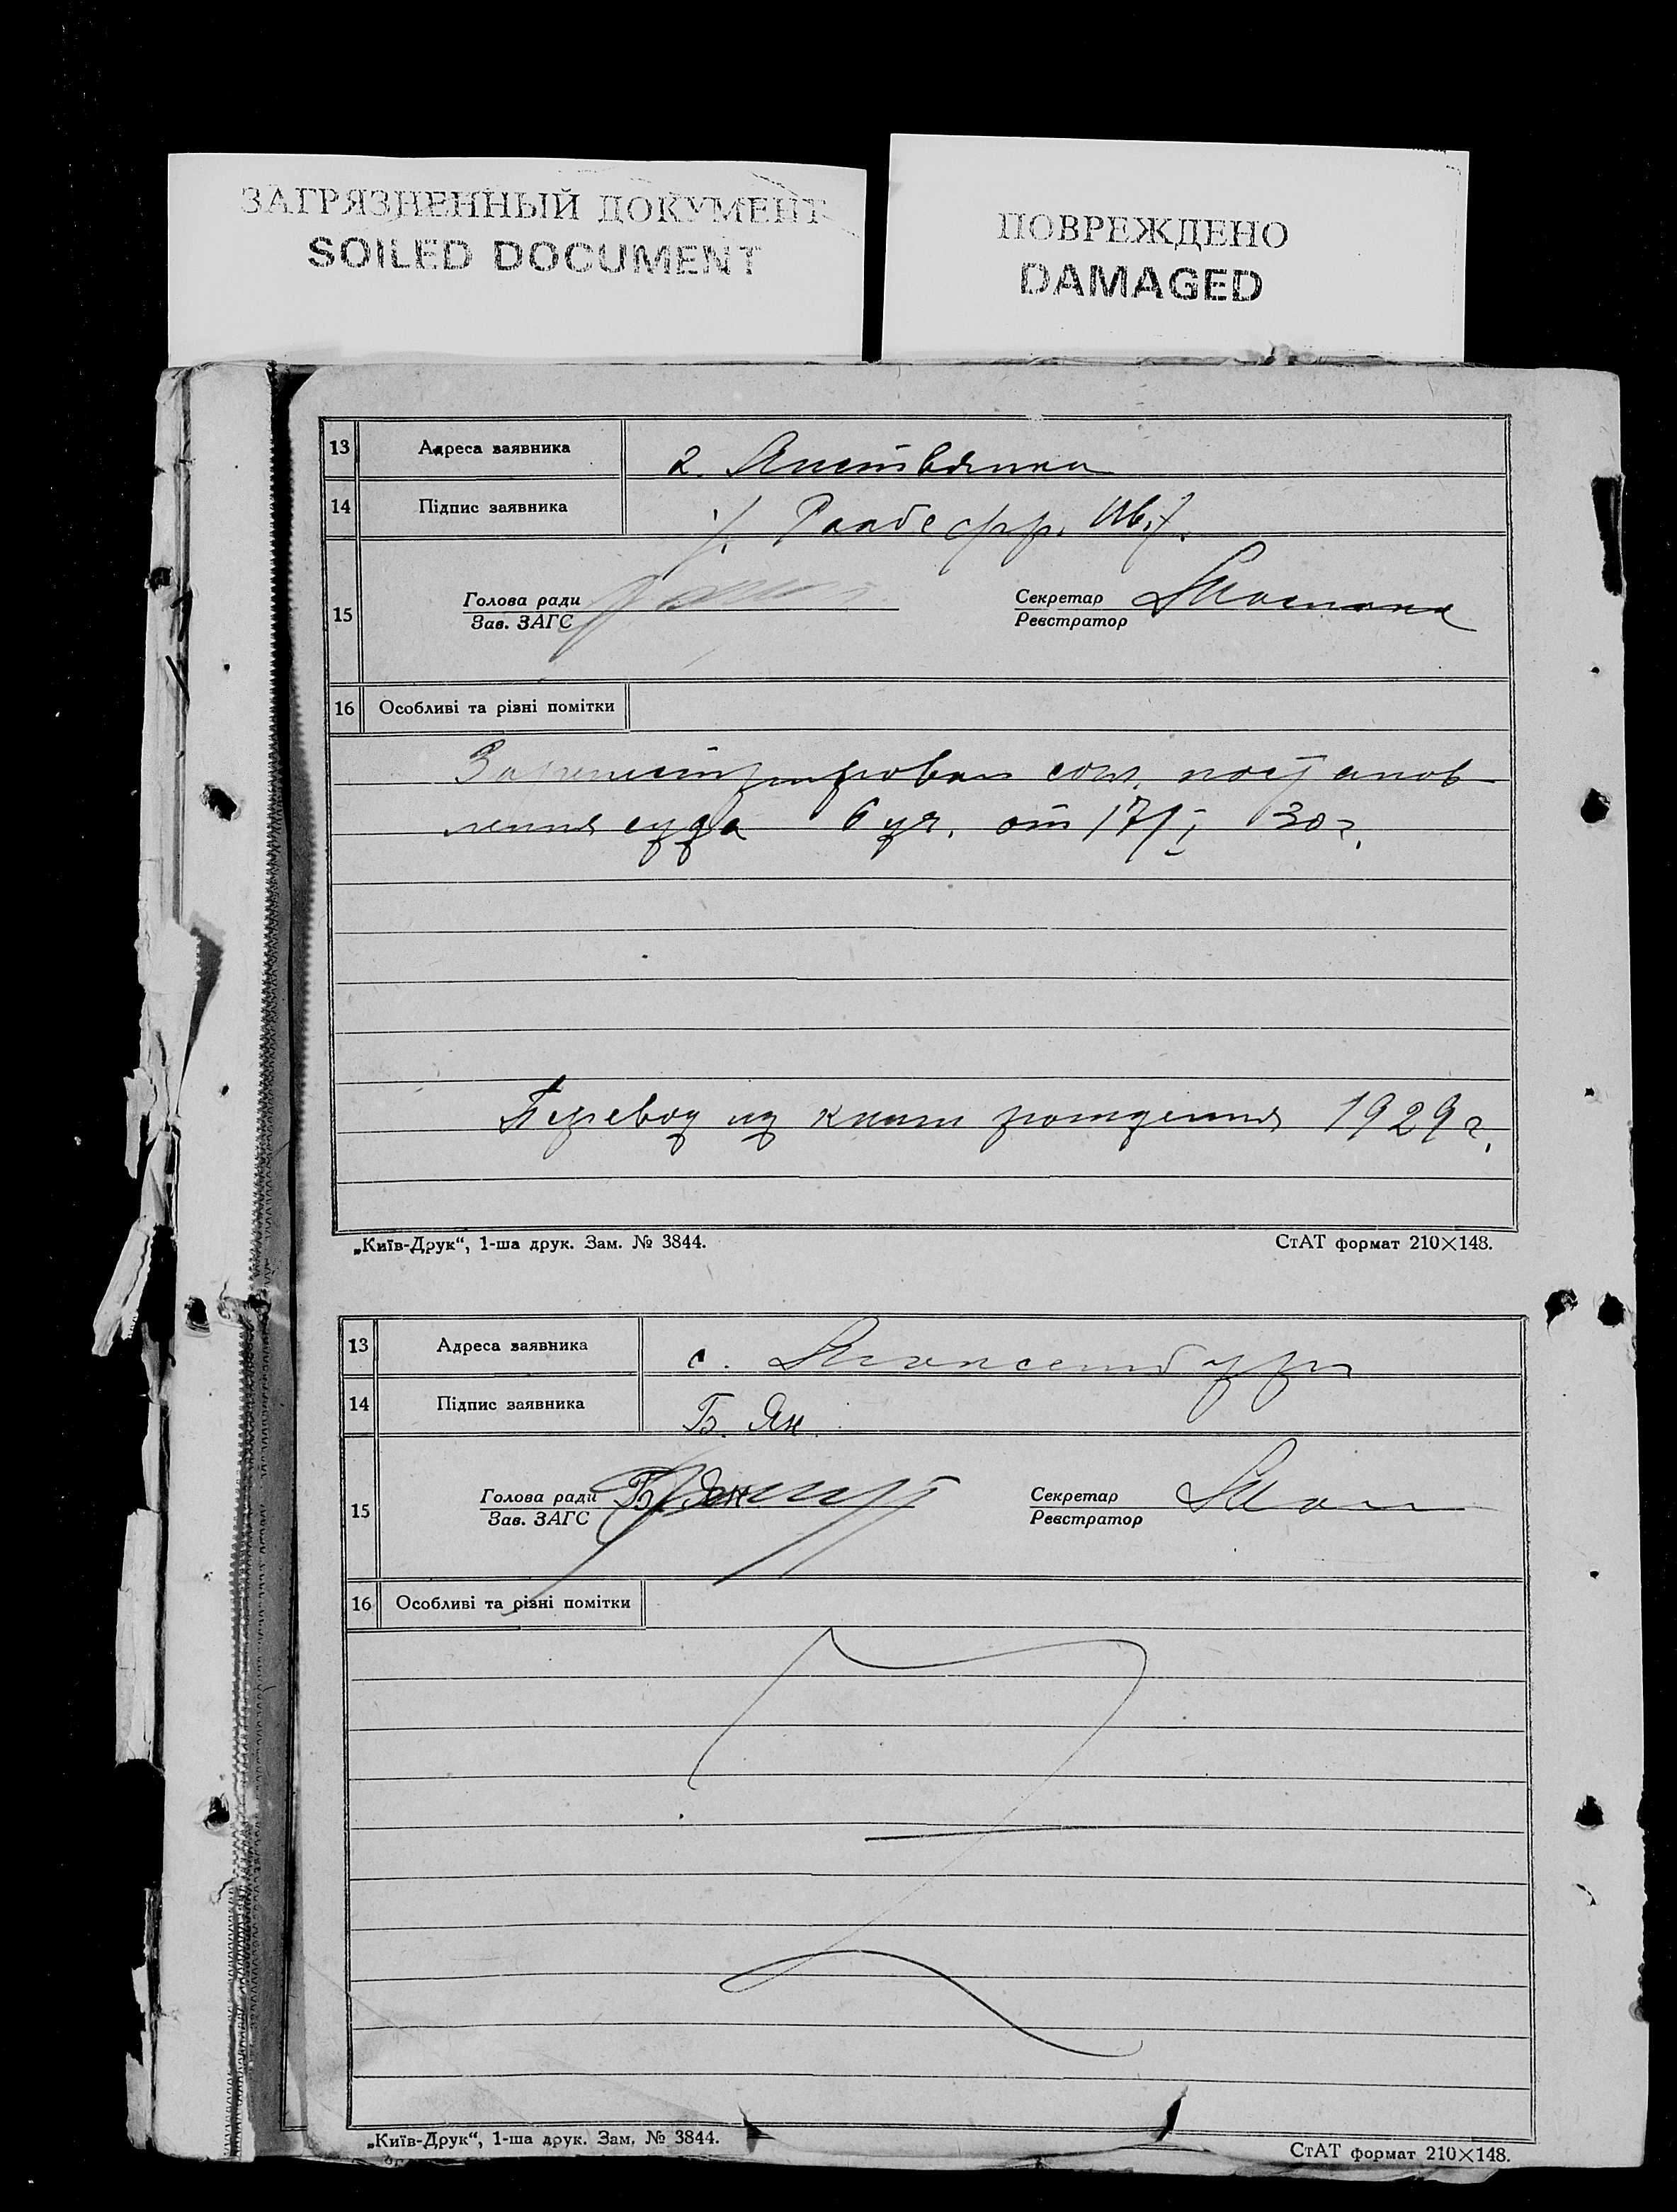 ЗАГРЯЗНЕННЫЙ ДОКУМЕНТ
SOILED DOCUMENT
ПОВРЕЖДЕНО
DAMAGED
13 Адреса заявника
14 Підпис заявника
15 Голова ради Секретар
Зав. ЗАГС Реєстратор
16 Особливі та різні помітки
Зарегистрирован сог. постанов
ления суда 6 уч. от 17/I 30 г.
Перевод из книги рождения 1929 г.
„Київ-Друк“, 1-ша друк. Зам. № 3844. СтАТ формат 210×148.
13 Адреса заявника с.
14 Підпис заявника Б. Ян.
15 Голова ради Б. Ян Секретар
Зав. ЗАГС Реєстратор
16 Особливі та різні помітки
„Київ-Друк“, 1-ша друк. Зам. № 3844. СтАТ формат 210×148.